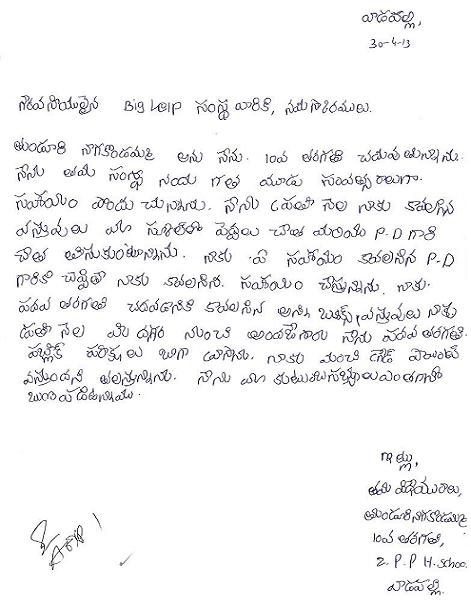 వాడపల్లి,
30-4-13
గౌరవనీయులైన Big Help సంస్థ వారికి, నమస్కారములు.
తుండూరి నాగకొండమ్మ అను నేను. 10వ తరగతి చదువుతున్నాను.
నేను తమ సంస్థ నందు గత మూడు సంవత్సరాలుగా
సహాయం పొందుచున్నాను. నేను ప్రతి నెల నాకు కావలసిన
వస్తువులు మా స్కూల్లో పెద్దలు చేత మరియు P.D గారి
చేత తీసుకుంటున్నాను. నాకు ఏ సహాయం కావలసిన P.D
గారికి చెప్పితే నాకు కావలసిన సహాయం చేస్తున్నారు. నాకు
పదవ తరగతి చదవడానికి కావలసిన అన్ని బుక్స్, వస్తువులు నాకు
ప్రతి నెల మీ దగ్గర నుంచి అందజేశారు నేను పదవ తరగతి
పబ్లిక్ పరీక్షలు బాగా రాసాను. నాకు మంచి గ్రేడ్ పాయింట్
వస్తుందని తలస్తున్నాను. నేను మా కుటుంబసభ్యులు ఎంతగానో
ఇట్లు,
తమ విధేయురాలు,
తుండూరి నాగకొండమ్మ
10వ తరగతి,
Z.P.P.H. School
వాడపల్లి.